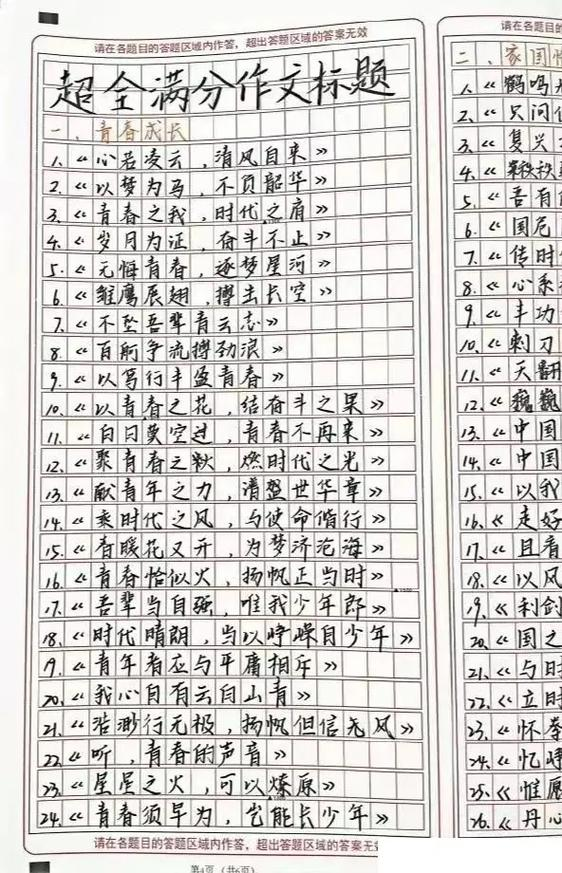 请在各题目的答题区域内作答，超出答题区域的答案无效
超全满分作文标题
一、青春成长
1.《心若凌云，清风自来》
2.《以梦为马，不负韶华》
3.《青春之我，时代之肩》
4.《岁月为证，奋斗不止》
5.《无悔青春，逐梦星河》
6.《雏鹰展翅，搏击长空》
7.《不坠吾辈青云志》
8.《百舸争流搏劲浪》
9.《以笃行丰盈青春》
10.《以青春之花，结奋斗之果》
11.《白日莫空过，青春不再来》
12.《聚青春之焱，燃时代之光》
13.《献青年之力，谱盛世华章》
14.《乘时代之风，与使命偕行》
15.《春暖花又开，为梦济沧海》
16.《青春恰似火，扬帆正当时》
17.《吾辈当自强，唯我少年郎》
18.《时代晴朗，当以峥嵘自少年》
19.《青年者应与平庸相斥》
20.《我心自有云白山青》
21.《浩渺行无极，扬帆但信无风》
22.《听，青春的声音》
23.《星星之火，可以燎原》
24.《青春须早为，岂能长少年》
请在各题目的答题区域内作答，超出答题区域的答案无效
第4页（共6页）
请在各题目的
二、家国
1.《鹤鸣
2.《只问
3.《复兴
4.《秩秩
5.《吾有
6.《国危
7.《传时
8.《心系
9.《丰功
10.《刺刀
11.《天翻
12.《巍巍
13.《中国
14.《中国
15.《以我
16.《走好
17.《且看
18.《以风
19.《利剑
20.《国之
21.《与时
22.《立时
23.《怀
24.《忆峥
25.《惟愿
26.《丹心